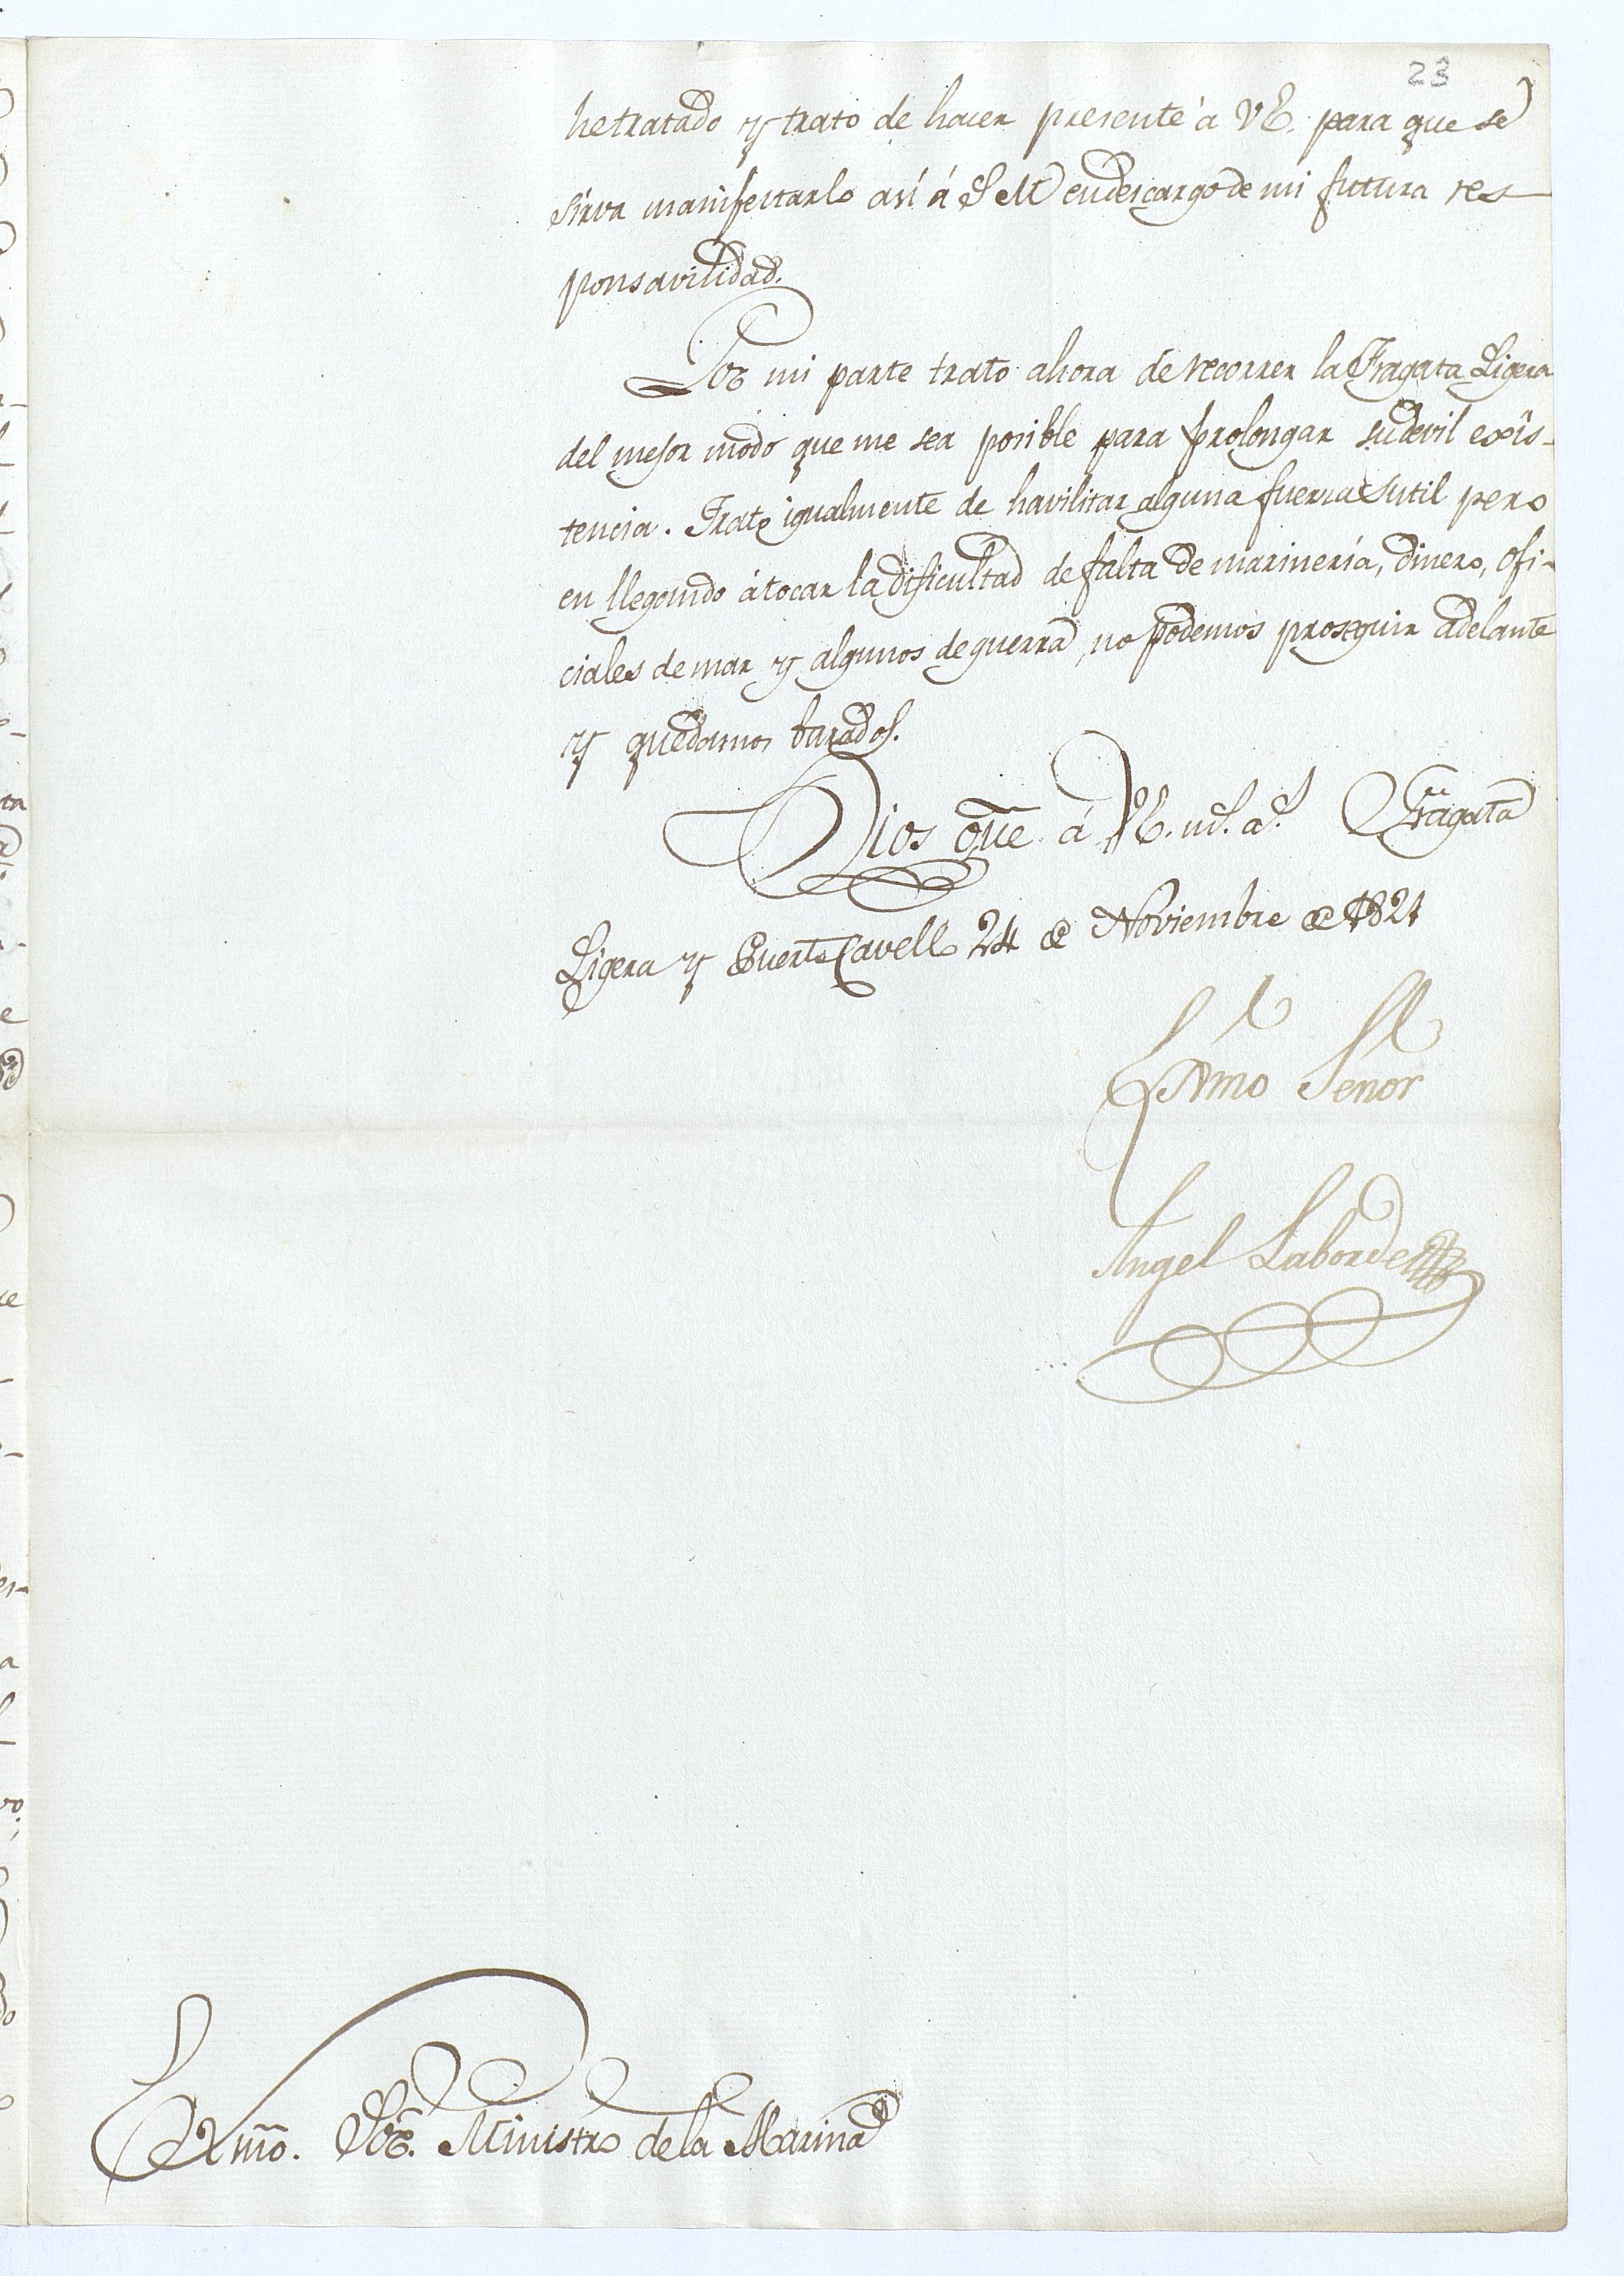 23
he tratado y trato de hacer presente á VE. para que se
sirva manifestarlo así á S M en descargo de mi futura res
ponsavilidad.
Por mi parte trato ahora de recorrer la Fragata Ligera
del mejor modo que me sea posible para prolongar su devil exîs-
tencia. Trato igualmente de havilitar alguna fuerza Sutil pero
en llegando á tocar la dificultad de falta de marinería, dinero, ofi-
ciales de mar y algunos de guerra, no podemos proseguir adelante
y quedamos barados.
Dios gue á VE. ms. as. Fragata
Ligera y Puerto Cavello 24 de Noviembre de 1821
Exmo Señor
Angel Laborde
Exmo. Sor. Ministro de la Marina